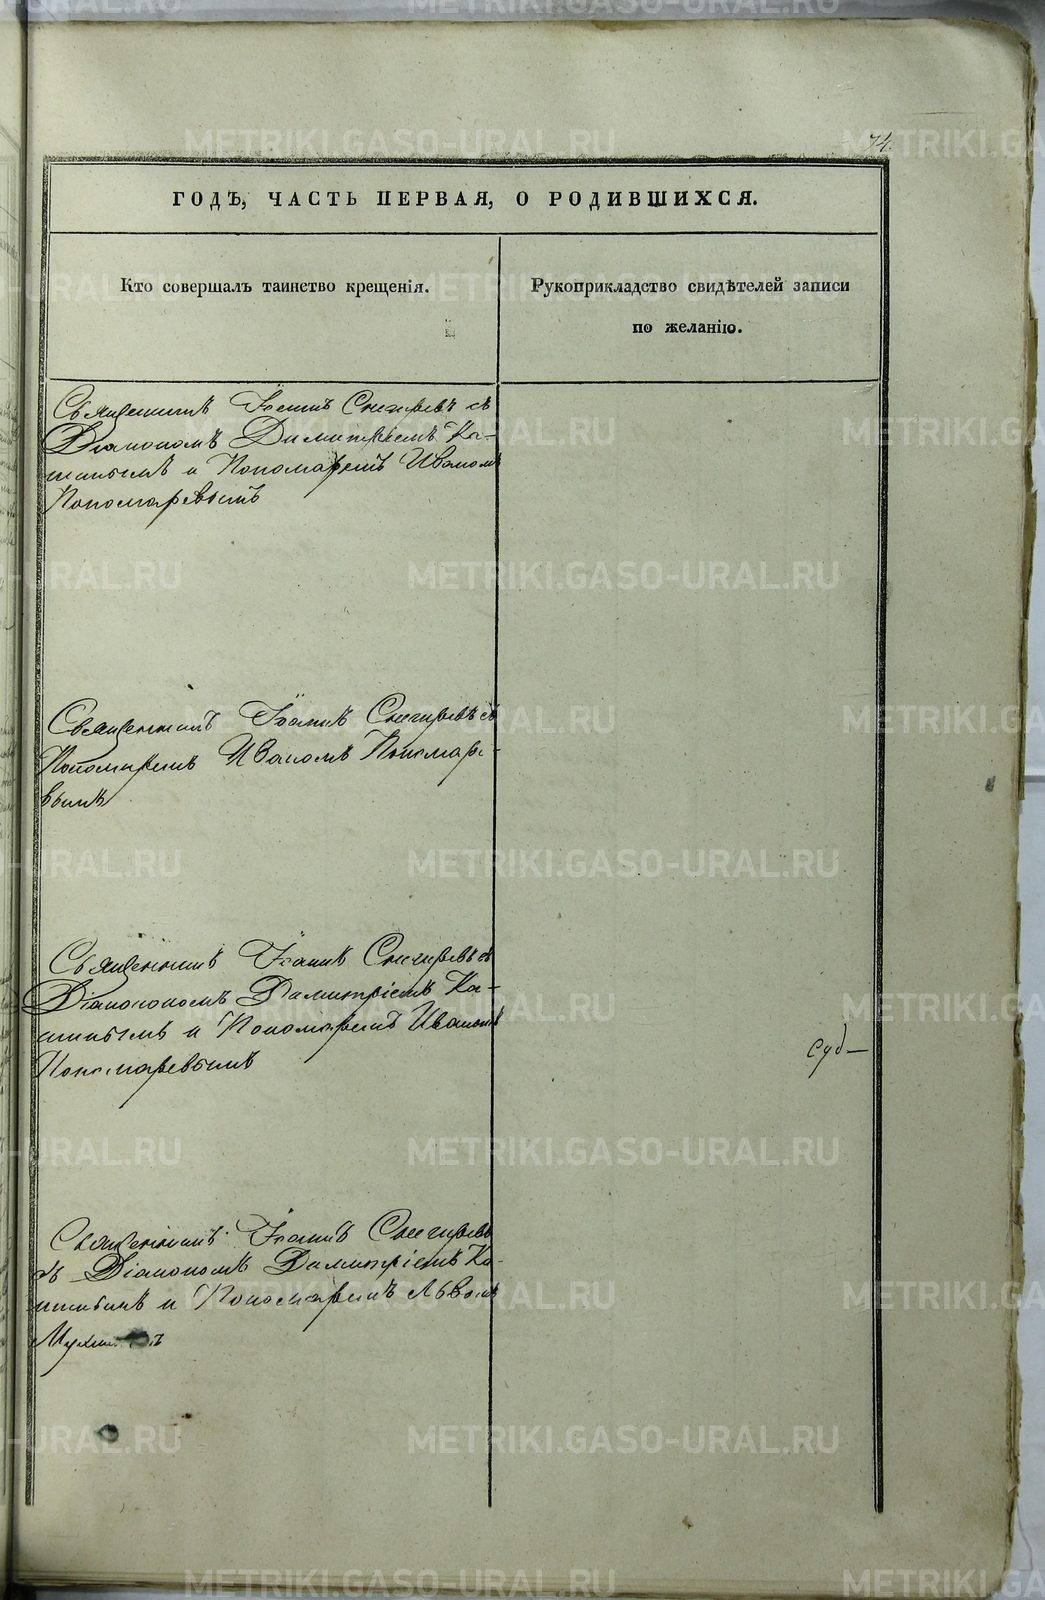 74.
ГОДЪ, ЧАСТЬ ПЕРВАЯ, О РОДИВШИХСЯ.
Кто совершалъ таинство крещенія.
Рукоприкладство свидѣтелей записи
по желанію.
Священникъ Іоаннъ Снегиревъ съ
Діакономъ Димитріемъ Ка-
шинымъ и Пономаремъ Иваномъ
Пономаревымъ
Священникъ Іоаннъ Снегиревъ съ
Пономаремъ Иваномъ Пономаре-
вымъ
Священникъ Іоаннъ Снегиревъ съ
Діакономъ Димитріемъ Ка-
шинымъ и Пономаремъ Иваномъ
Пономаревымъ
суд-
Священникъ Іоаннъ Снегиревъ
съ Діакономъ Димитріемъ Ка-
шинымъ и Пономаремъ Львомъ
METRIKI.GASO-URAL.RU